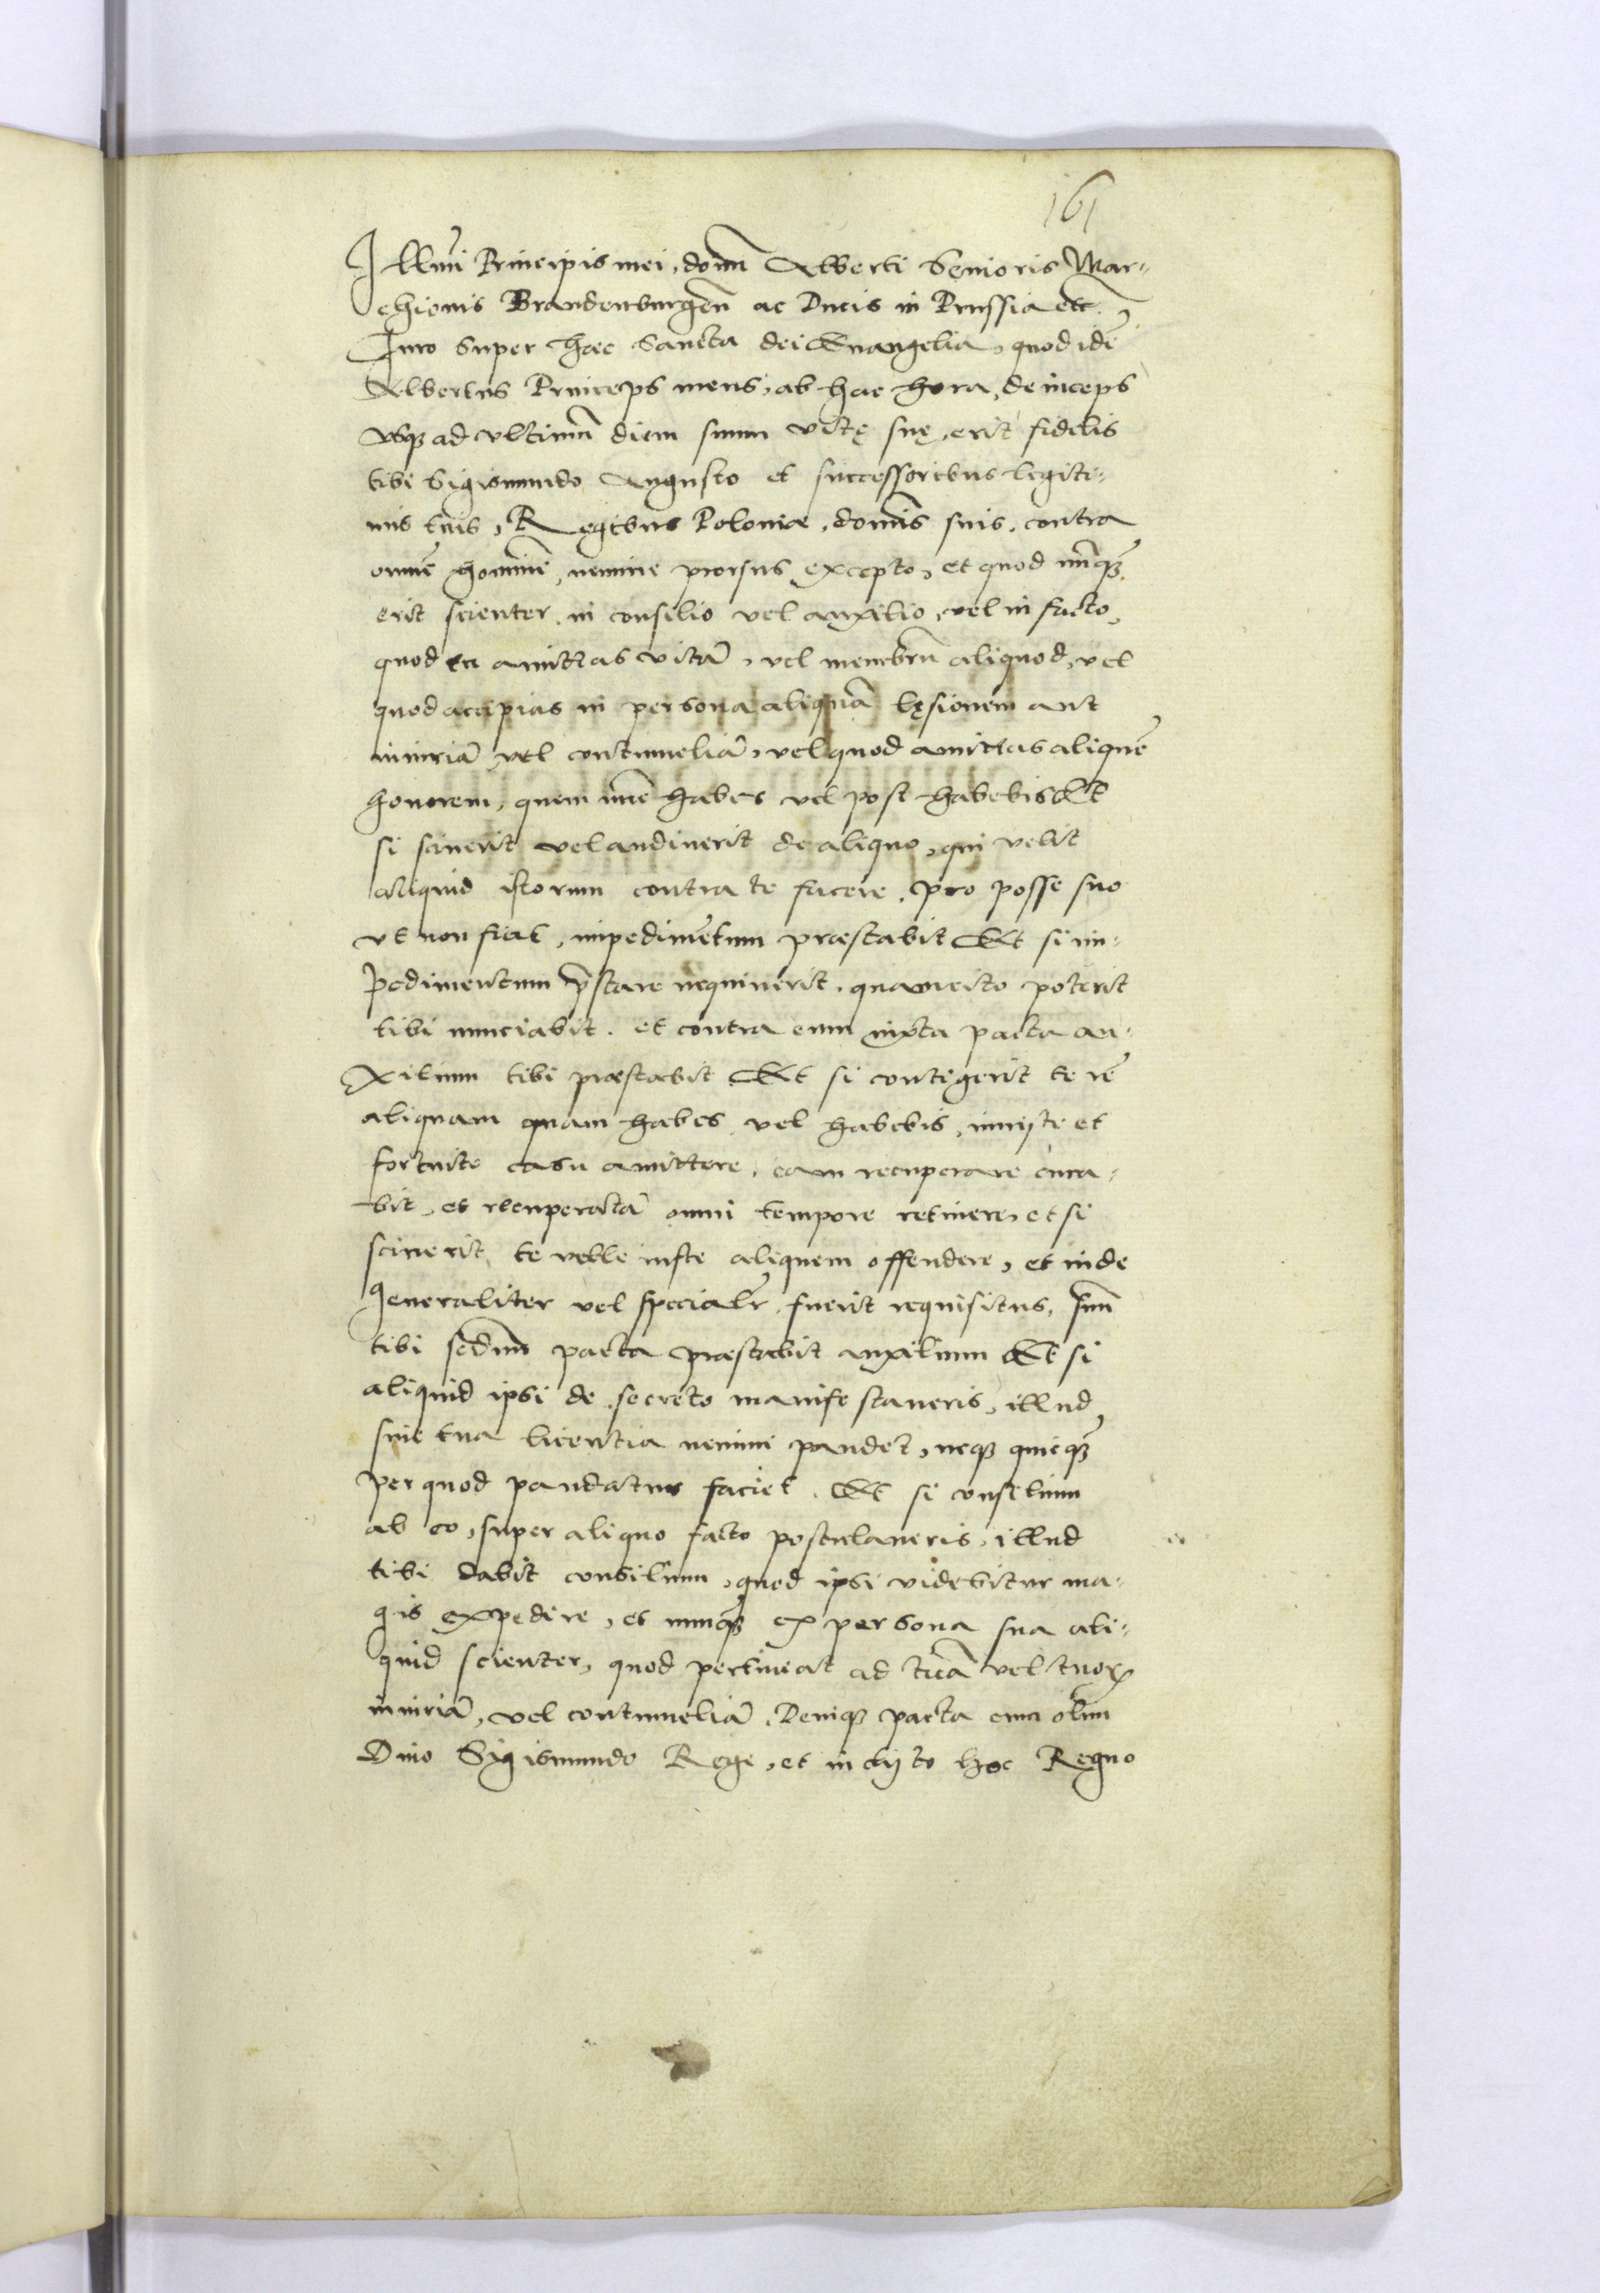 161
Illmi Principis mei, domi Alberti Senioris Mar-
chionis Brandenburgen̄ ac Ducis in Prussia etc.
Juro super haec Sancta dei Euangelia, quod idē
Albertus Princeps meus, ab hac hora, deinceps
vsqꝫ ad vltimū diem suum vitę suę, erit fidelis
tibi Sigismundo Augusto et successoribus legiti-
mis tuis, Regibus Poloniæ, domīs suis, contra
omnē hominē, nemine prorsus excepto, et quod nūqꝫ
erit scienter, in consilio vel auxilio, vel in facto,
quod tu amittas vitā, vel membrū aliquod, vel
quod accipias in persona aliquā lęsionem aut
iniuriā vel contumeliā, vel quod amittas aliquē
honorem, quem nūc habes vel post habebis Et
si sciuerit vel audiuerit de aliquo, qui velit
aliquid istorum contra te facere, pro posse suo
vt non fiat, impedimētum præstabit Et si im-
pedimentum p̄stare nequiuerit, quam cito poterit
tibi nunciabit. et contra eum iuxta pacta au-
xilium tibi præstabit Et si contigerit te rē
aliquam quam habes vel habebis, iniuste et
fortuito casu amittere, eam recuperare cura-
bit, et recuperatā omni tempore retinere, et si
sciuerit te velle iuste aliquem offendere, et inde
generaliter vel specialr̄ fuerit requisitus, suū
tibi secdūm pacta præstabit auxilium Et si
aliquid ipsi de secreto manifestaueris, illud
sine tua licentia nemini pandet, neqꝫ quicqꝫ
per quod pandatur faciet. Et si consilium
ab eo, super aliquo facto postulaueris, illud
tibi dabit consilium, quod ipsi videbitur ma-
gis expedire, et nunqꝫ ex persona sua ali-
quid scienter, quod pertineat ad tuā vel tuoꝝ
iniuriā, vel contumeliā. Deniqꝫ pacta cum olim
Diuo Sigismundo Rege, et inclyto hoc Regno